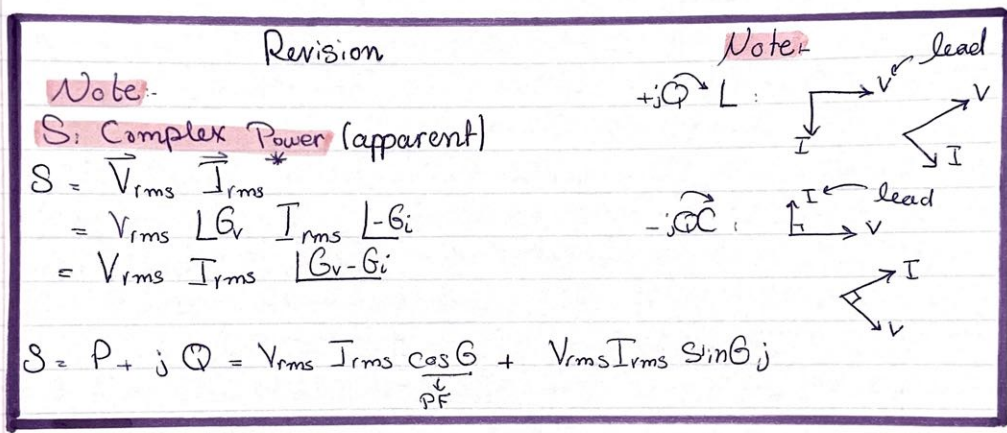 Revision
Note:-
S: Complex Power (apparent)
S = V⃗rms I⃗rms*
= Vrms ∠θv Irms ∠-θi
= Vrms Irms ∠θv-θi
S = P + j Q = Vrms Irms cosθ + Vrms Irms sinθ j
PF
Note:-
+jQ L :
V lead
I
V
I
-jQC :
I lead
V
I
V